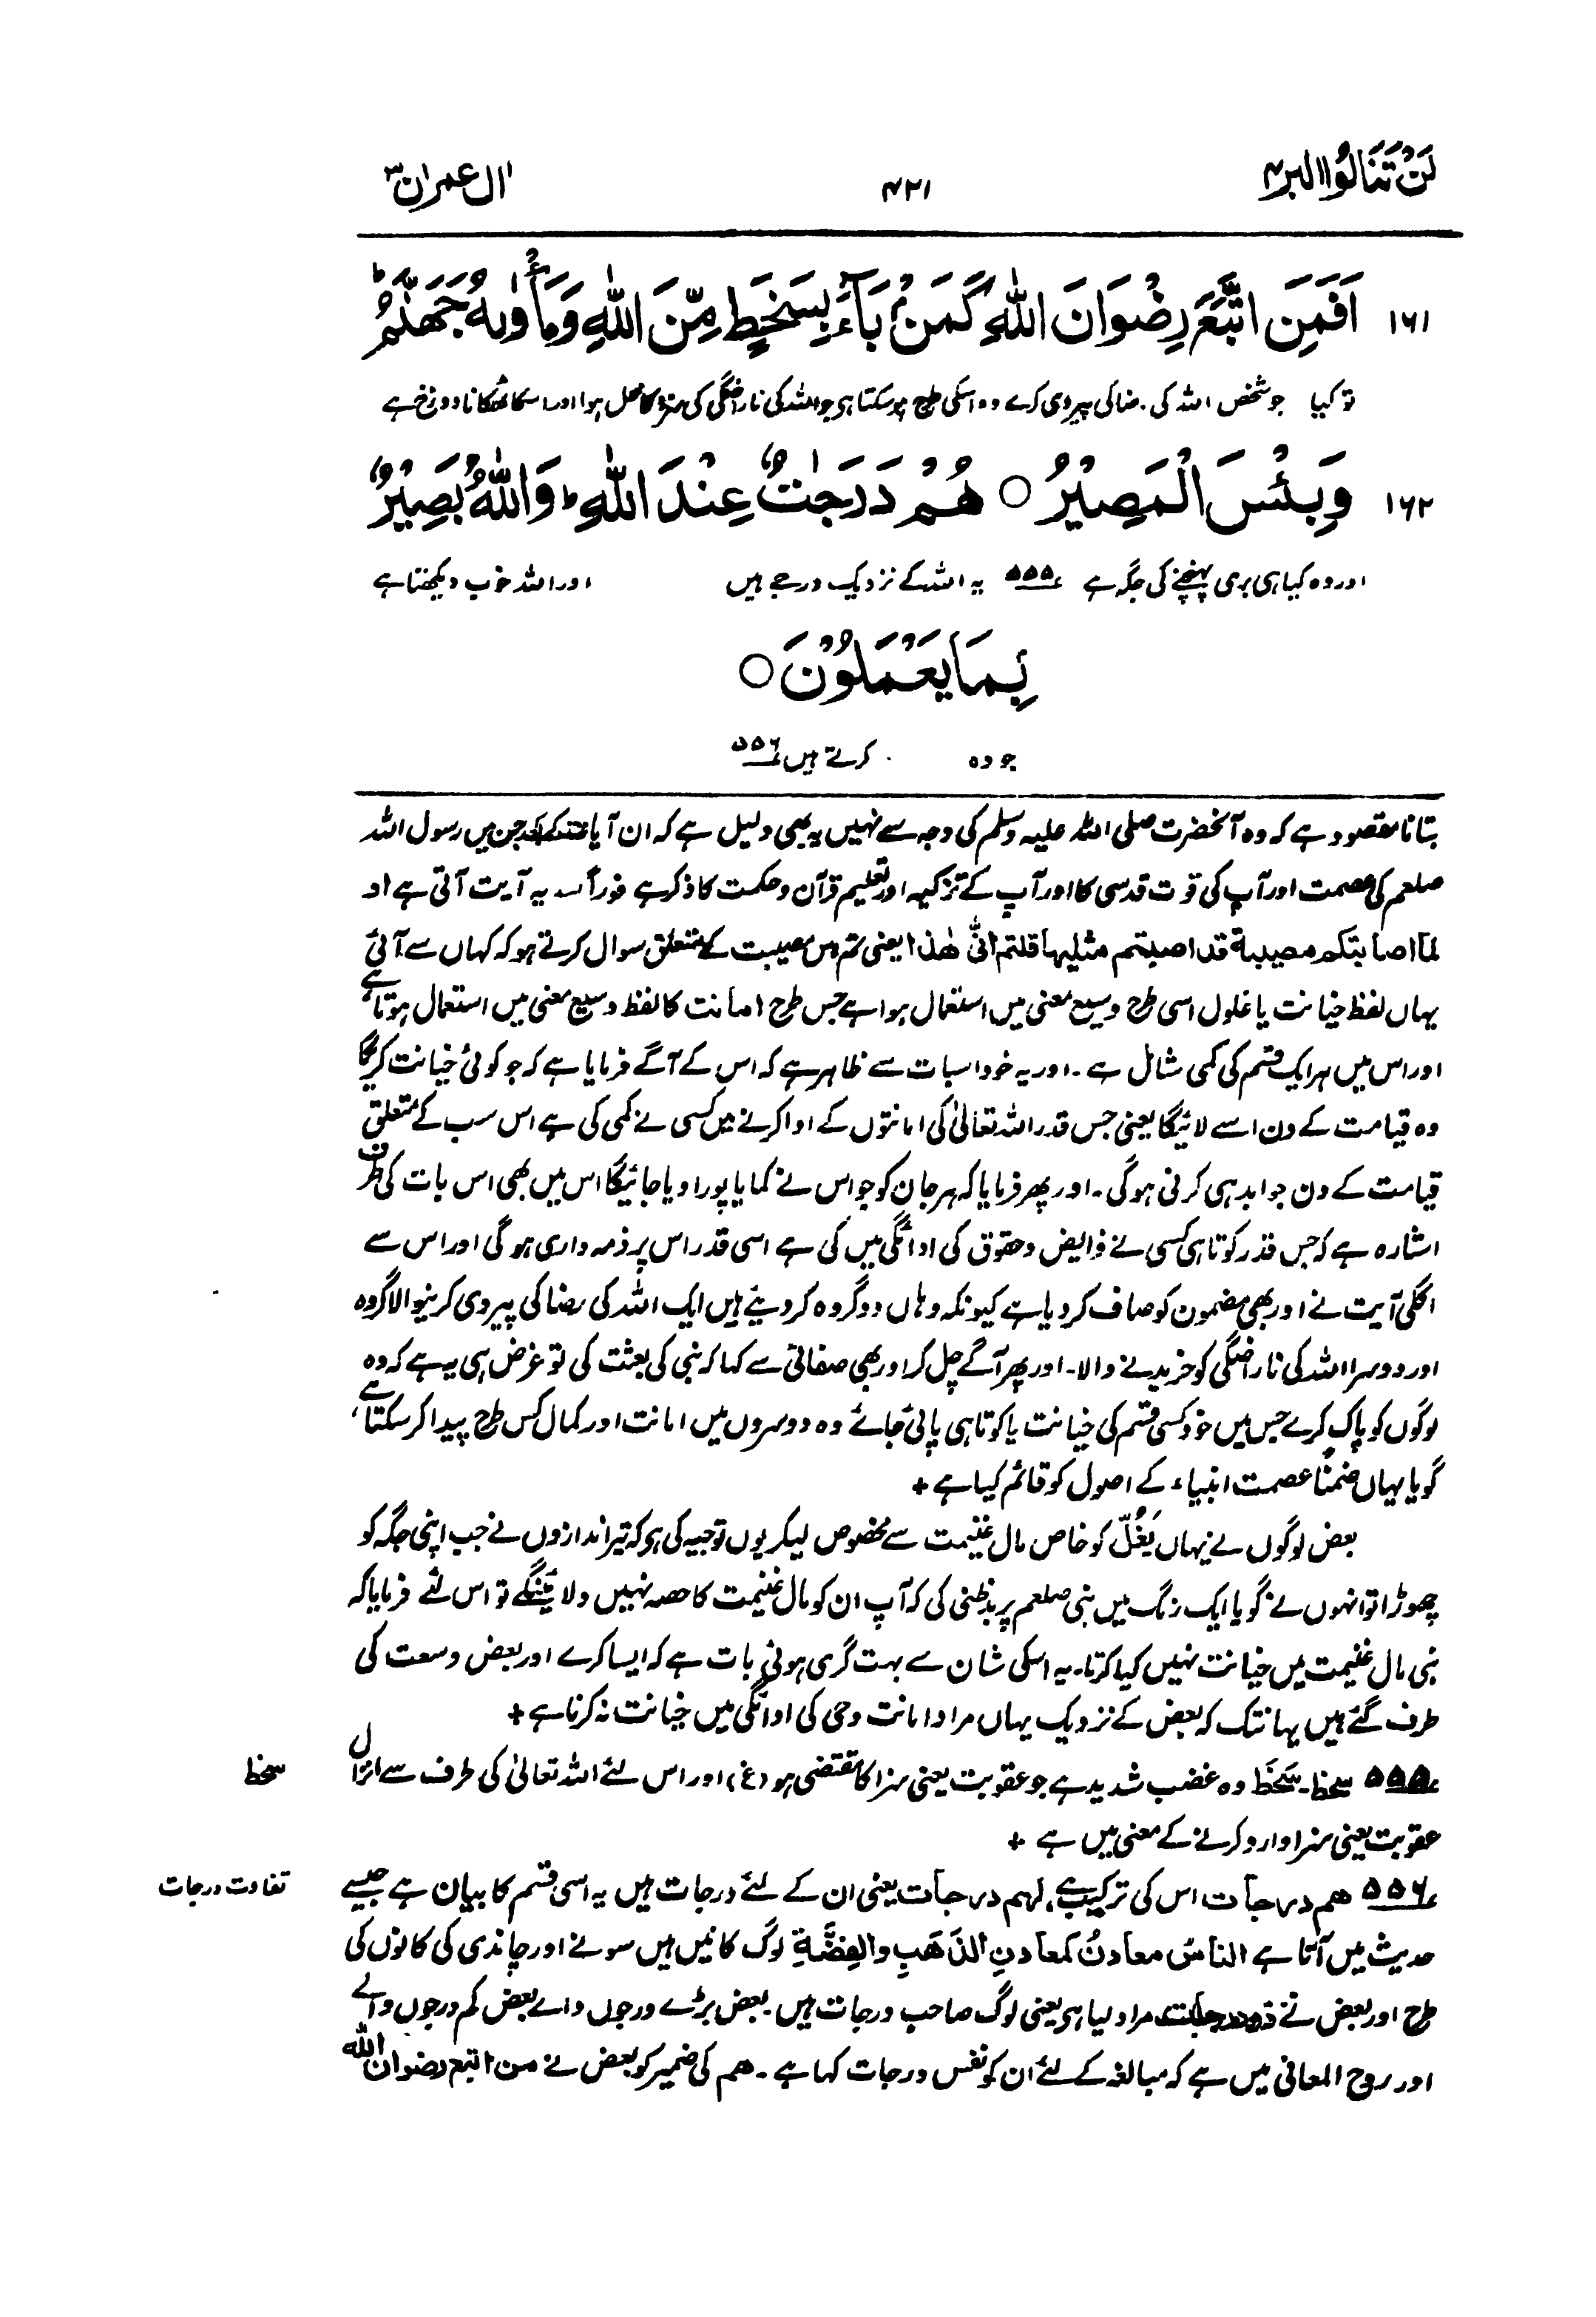 لَنْ تَنَالُوا البر۴
۴۲۱
اٰل عمرٰن۳
۱۶۱ اَفَمَنِ اتَّبَعَ رِضْوَانَ اللّٰهِ كَمَنْۢ بَآءَ بِسَخَطٍ مِّنَ اللّٰهِ وَمَاْوٰىهُ جَهَنَّمُ ؕ
تو کیا جو شخص اللہ کی رضا کی پیروی کرے وہ اسکی طرح ہوسکتا ہی جو اللہ کی ناراضگی کی سزا کا اہل ہوا اور اسکا ٹھکانا دوزخ ہے
۱۶۲ وَبِئْسَ الْمَصِيْرُ ○ هُمْ دَرَجٰتٌ عِنْدَ اللّٰهِ ؕ وَاللّٰهُ بَصِيْرٌۢ
اور وہ کیا ہی بری پہنچنے کی جگہ ہے ۵۵۵ یہ اللہ کے نزدیک درجے ہیں اور اللہ خوب دیکھتا ہے
بِمَا يَعْمَلُوْنَ ○
جو وہ کرتے ہیں ۵۵۶
بتانا مقصود ہے کہ وہ آنحضرت صلی اللہ علیہ وسلم کی وجہ سے نہیں یہ بھی دلیل ہے کہ ان آیات کے بعد جن میں رسول اللہ
صلعم کی عصمت اور آپ کی قوت قدسی کا اور آپ کے تزکیہ اور تعلیم قرآن و حکمت کا ذکر ہے فوراً یہ آیت آتی ہے او
لمآ اصابتکم مصیبة قد اصبتم مثلیہا قلتم انّٰی ھٰذا یعنی تم اس مصیبت کے متعلق سوال کرتے ہو کہ کہاں سے آئی
یہاں لفظ خیانت یا غلول اسی طرح وسیع معنی میں استعمال ہوا ہے جس طرح امانت کا لفظ وسیع معنی میں استعمال ہوتا ہے
اور اس میں ہر ایک قسم کی کمی شامل ہے ۔ اور یہ خود اسبات سے ظاہر ہے کہ اس کے آگے فرمایا ہے کہ جو کوئی خیانت کریگا
وہ قیامت کے دن اسے لائیگا یعنی جس قدر اللہ تعالیٰ کی امانتوں کے ادا کرنے میں کسی نے کمی کی ہے اس سب کے متعلق
قیامت کے دن جوابدہی کرنی ہوگی ۔ اور پھر فرمایا کہ ہر جان کو جو اس نے کمایا پورا دیا جائیگا اس میں بھی اس بات کی طرف
اشارہ ہے کہ جس قدر کوتاہی کسی نے فرایض و حقوق کی ادائگی میں کی ہے اسی قدر اس پر ذمہ داری ہوگی اور اس سے
اگلی آیت نے اور بھی مضمون کو صاف کر دیا ہے کیونکہ وہاں دو گروہ کر دیئے ہیں ایک اللہ کی رضا کی پیروی کرنیوالا گروہ
اور دوسرا اللہ کی ناراضگی کو خریدنے والا ۔ اور پھر آگے چل کر اور بھی صفائی سے کہا کہ نبی کی بعثت کی تو غرض ہی یہ ہے کہ وہ
لوگوں کو پاک کرے جس میں خود کسی قسم کی خیانت یا کوتاہی پائی جائے وہ دوسروں میں امانت اور کمال کس طرح پیدا کر سکتا ہے،
گویا یہاں ضمناً عصمت انبیاء کے اصول کو قائم کیا ہے +
بعض لوگوں نے یہاں یَغُلّ کو خاص مال غنیمت سے مخصوص لیکر یوں توجیہ کی ہی کہ تیراندازوں نے جب اپنی جگہ کو
چھوڑا تو انہوں نے گویا ایک رنگ میں نبی صلعم پر بدظنی کی کہ آپ ان کو مال غنیمت کا حصہ نہیں دلائینگے تو اس لئے فرمایا کہ
نبی مال غنیمت میں خیانت نہیں کیا کرتا ۔ یہ اسکی شان سے بہت گری ہوئی بات ہے کہ ایسا کرے اور بعض وسعت کی
طرف گئے ہیں یہانتک کہ بعض کے نزدیک یہاں مراد امانت وحی کی ادائگی میں خیانت نہ کرنا ہے +
سخط
۵۵۵ سخط ۔ سَخَط وہ غضب شدید ہے جو عقوبت یعنی سزا کا مقتضی ہو (غ) اور اس لئے اللہ تعالیٰ کی طرف سے انزال
عقوبت یعنی سزا وارد کرنے کے معنی میں ہے +
تفاوت درجات
۵۵۶ ھم درجات اس کی ترکیب ہے، لہم درجات یعنی ان کے لئے درجات ہیں یہ اسی قسم کا بیان ہے جیسے
حدیث میں آتا ہے الناسُ معادنُ کمعادنِ الذَھَبِ والفِضَّةِ لوگ کانیں ہیں سونے اور چاندی کی کانوں کی
طرح اور بعض نے ذو درجات مراد لیا ہی یعنی لوگ صاحب درجات ہیں بعض بڑے درجوں والے بعض کم درجوں والے
اور روح المعانی میں ہے کہ مبالغہ کے لئے ان کو نفس درجات کہا ہے ۔ ھم کی ضمیر کو بعض نے من اتبع رضوان اللہ